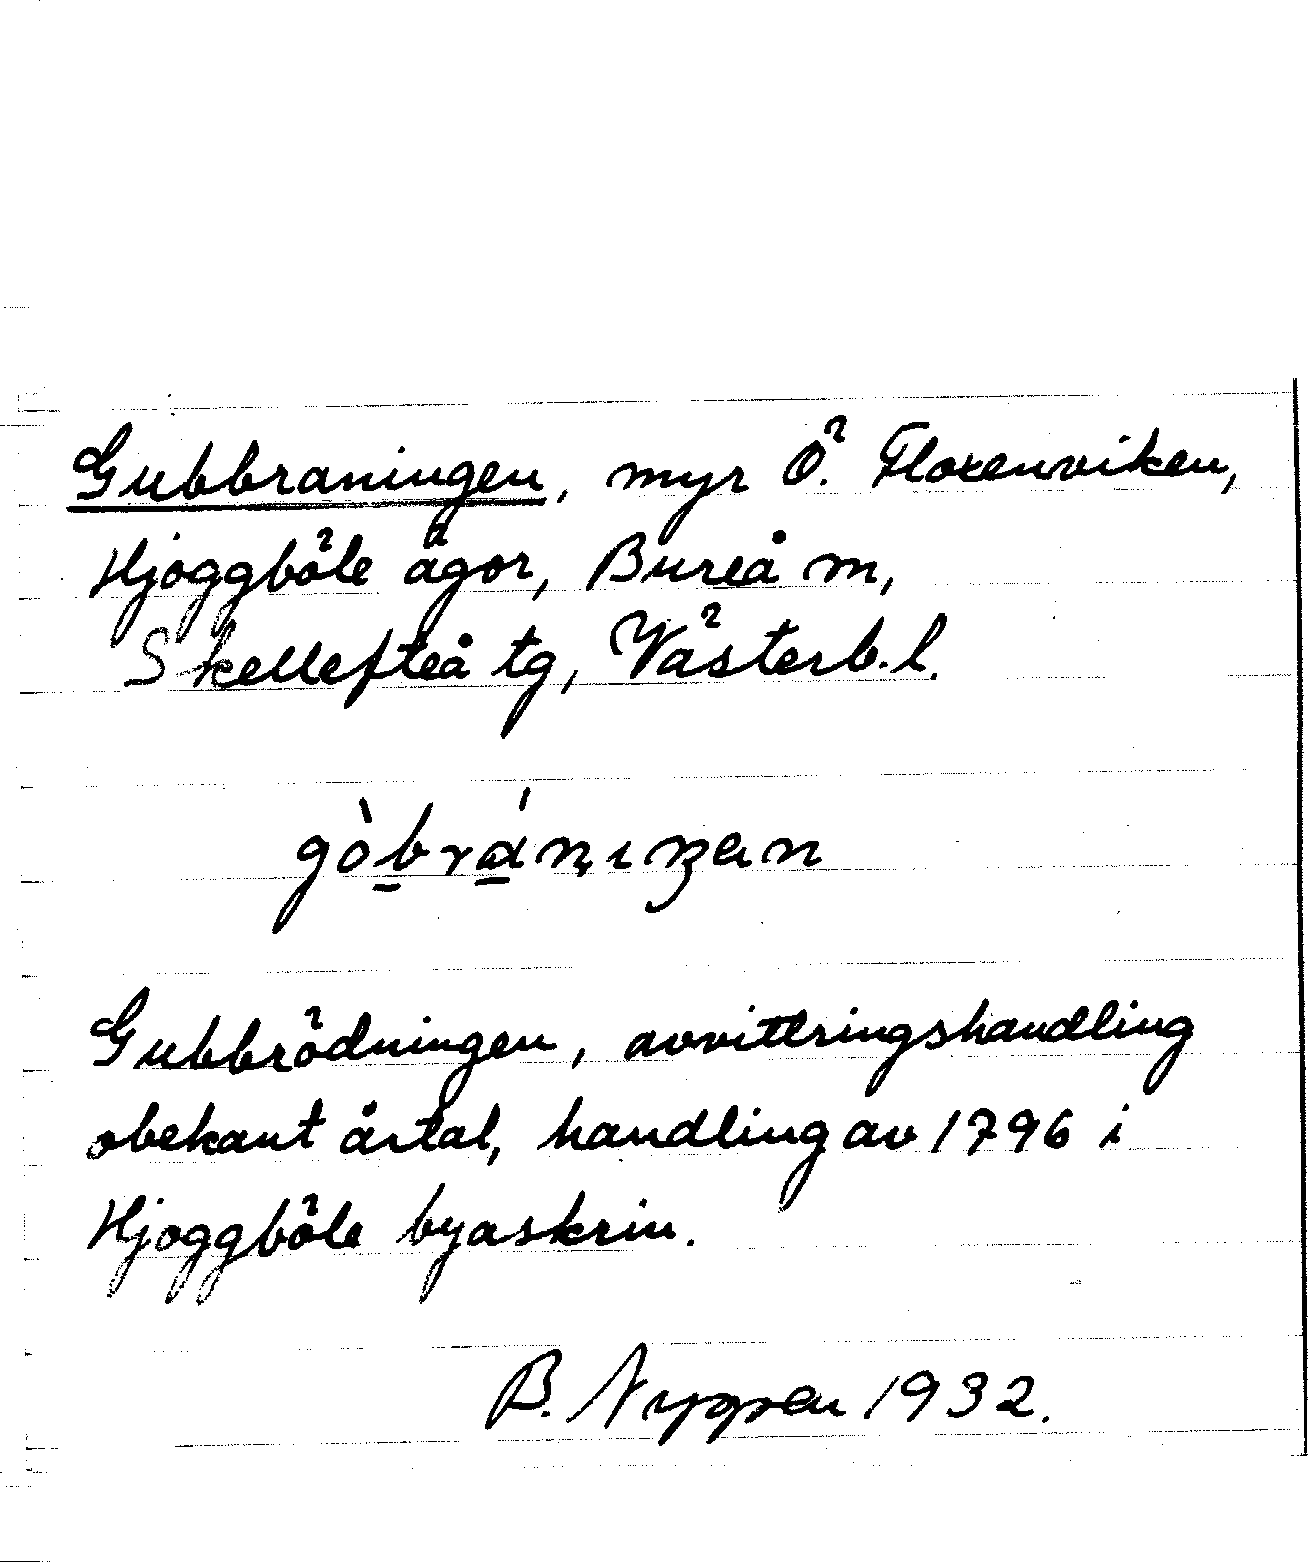 Gubbraningen, myr Ö. Floxenviken,
Hjoggböle ägor, Bureå m,
Skellefteå tg, Västerb. l.
gòbrániŋan
Gubbrödningen, avvittringshandling
obekant årtal, handling av 1796 i
Hjoggböle byaskrin.
B. Nygren 1932.